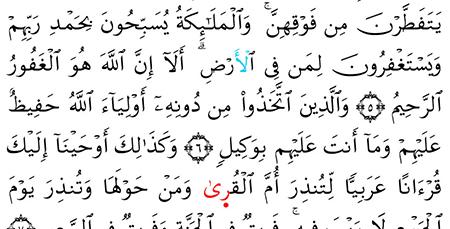 يَتَفَطَّرْنَ مِن فَوْقِهِنَّ ۚ وَالْمَلَٰٓئِكَةُ يُسَبِّحُونَ بِحَمْدِ رَبِّهِمْ
وَيَسْتَغْفِرُونَ لِمَن فِى الْأَرْضِ ۗ أَلَآ إِنَّ اللَّهَ هُوَ الْغَفُورُ
الرَّحِيمُ ۝٥ وَالَّذِينَ اتَّخَذُوا۟ مِن دُونِهِۦٓ أَوْلِيَآءَ اللَّهُ حَفِيظٌ
عَلَيْهِمْ وَمَآ أَنتَ عَلَيْهِم بِوَكِيلٍ ۝٦ وَكَذَٰلِكَ أَوْحَيْنَآ إِلَيْكَ
قُرْءَانًا عَرَبِيًّا لِّتُنذِرَ أُمَّ الْقُرىٰ وَمَنْ حَوْلَهَا وَتُنذِرَ يَوْمَ